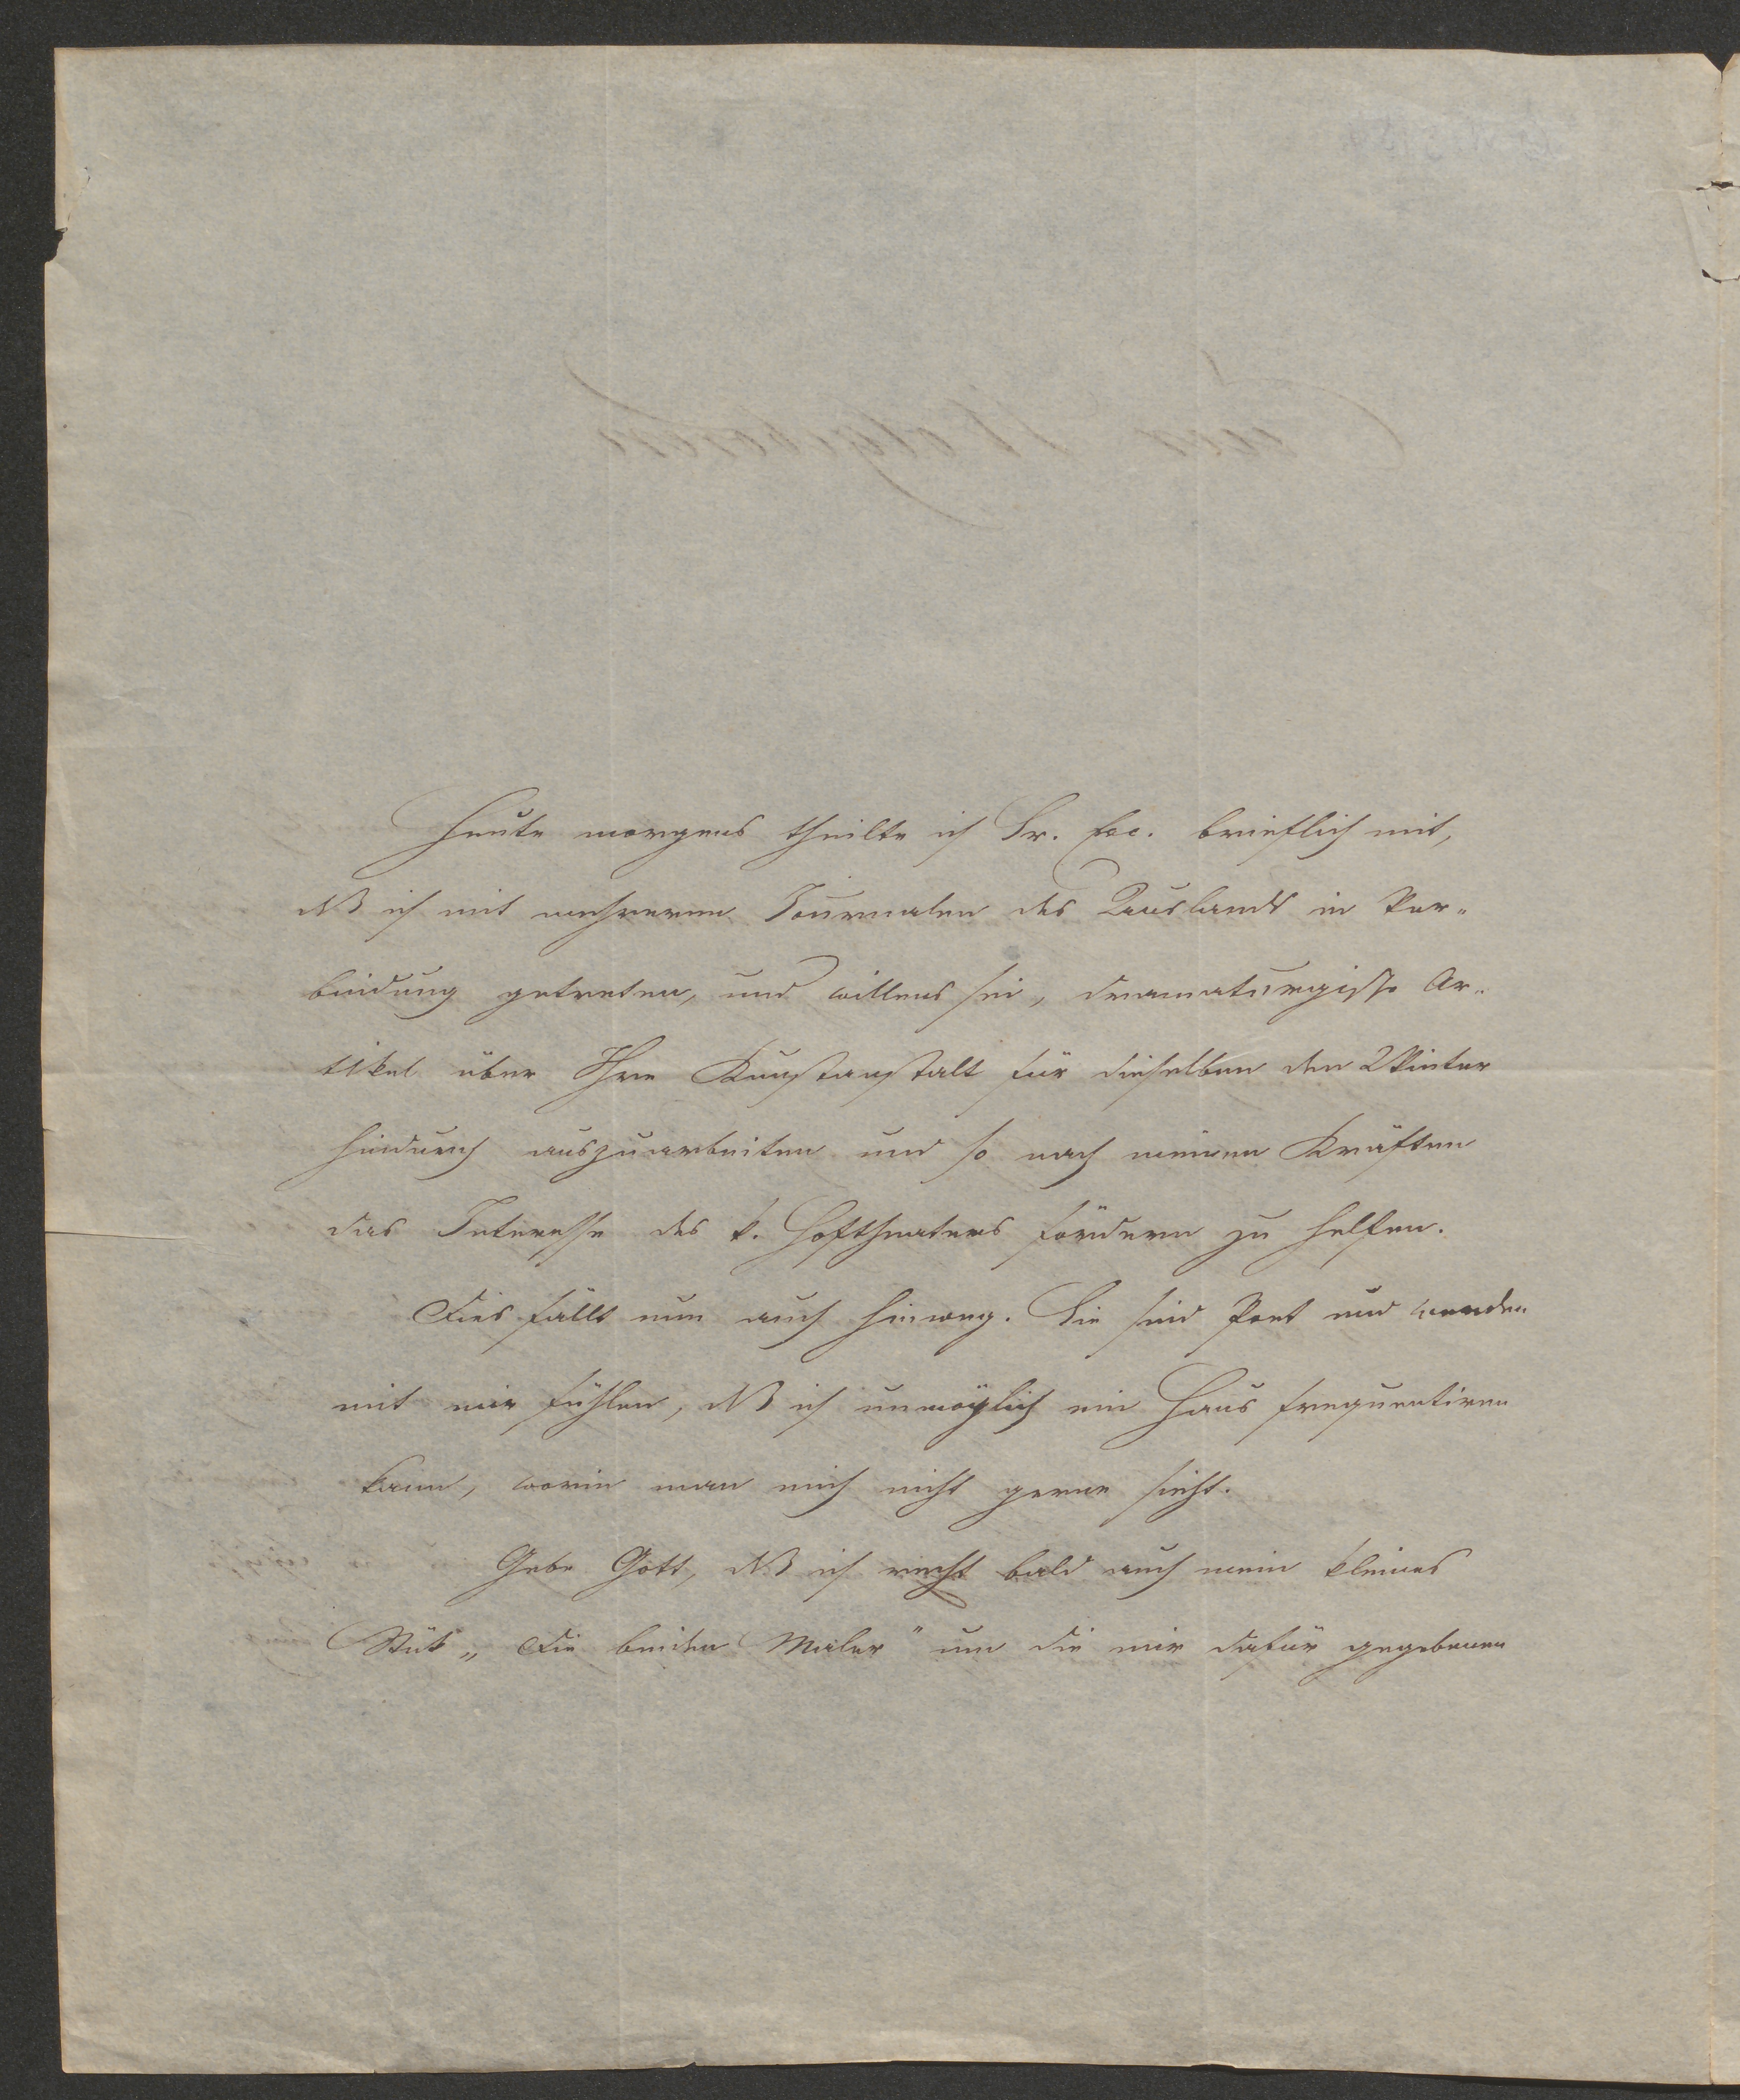 Heute morgens theilte ich Sr. Exc. brieflich mit,
daß ich mit mehreren Journalen des Auslands in Ver-
bindung getreten, und willens sei, dramaturgische Ar-
tikel über Ihre Kunstanstalt für dieselben den Winter
hindurch auszuarbeiten und so nach meinen Kräften
das Interesse des k. Hoftheaters fördern zu helfen.
Dies fällt nun auch hinweg. Sie sind Poet und werden
mit mir fühlen, daß ich unmöglich ein Haus frequentiren
kann, worin man mich nicht gerne sieht.
Gebe Gott, daß ich recht bald auch mein kleines
Stük „Die beiden Maler" um die mir dafür gegebenen